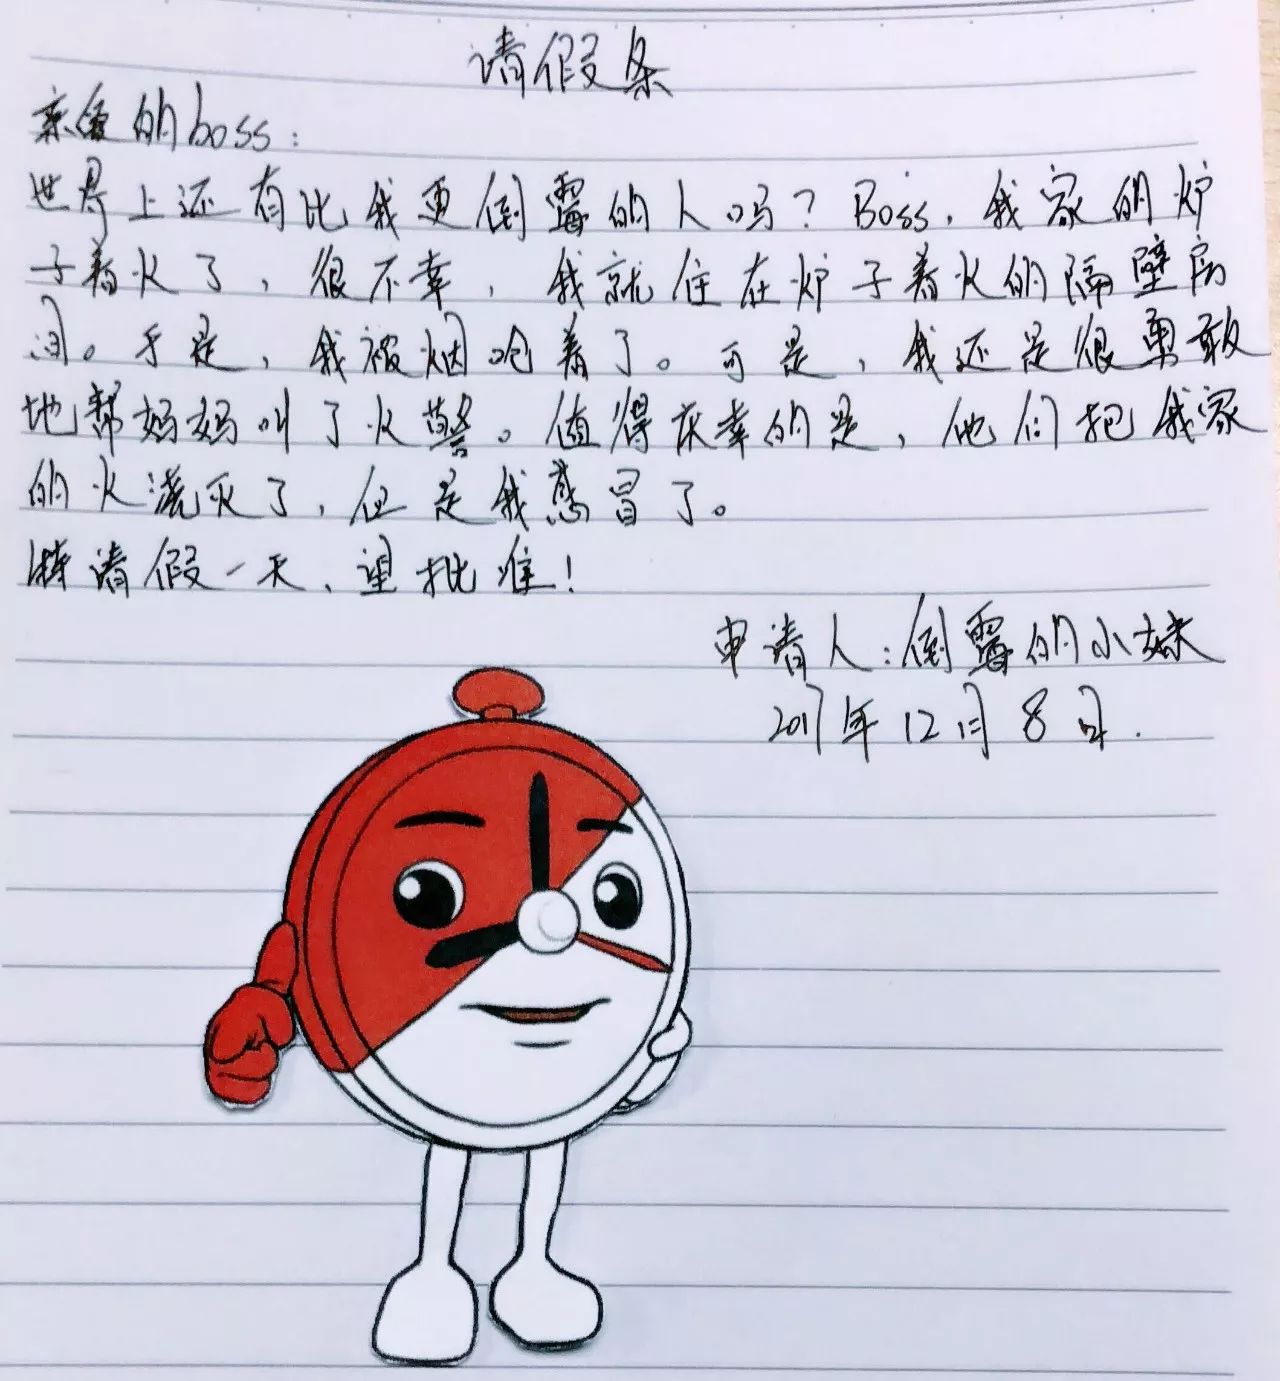 请假条
亲爱的boss：
世界上还有比我更倒霉的人吗？Boss，我家的炉
子着火了，很不幸，我就住在炉子着火的隔壁房
间。于是，我被烟呛着了。可是，我还是很勇敢
地帮妈妈叫了火警。值得庆幸的是，他们把我家
的火浇灭了，但是我感冒了。
特请假一天，望批准！
申请人：倒霉的小妹
2017年12月8日.